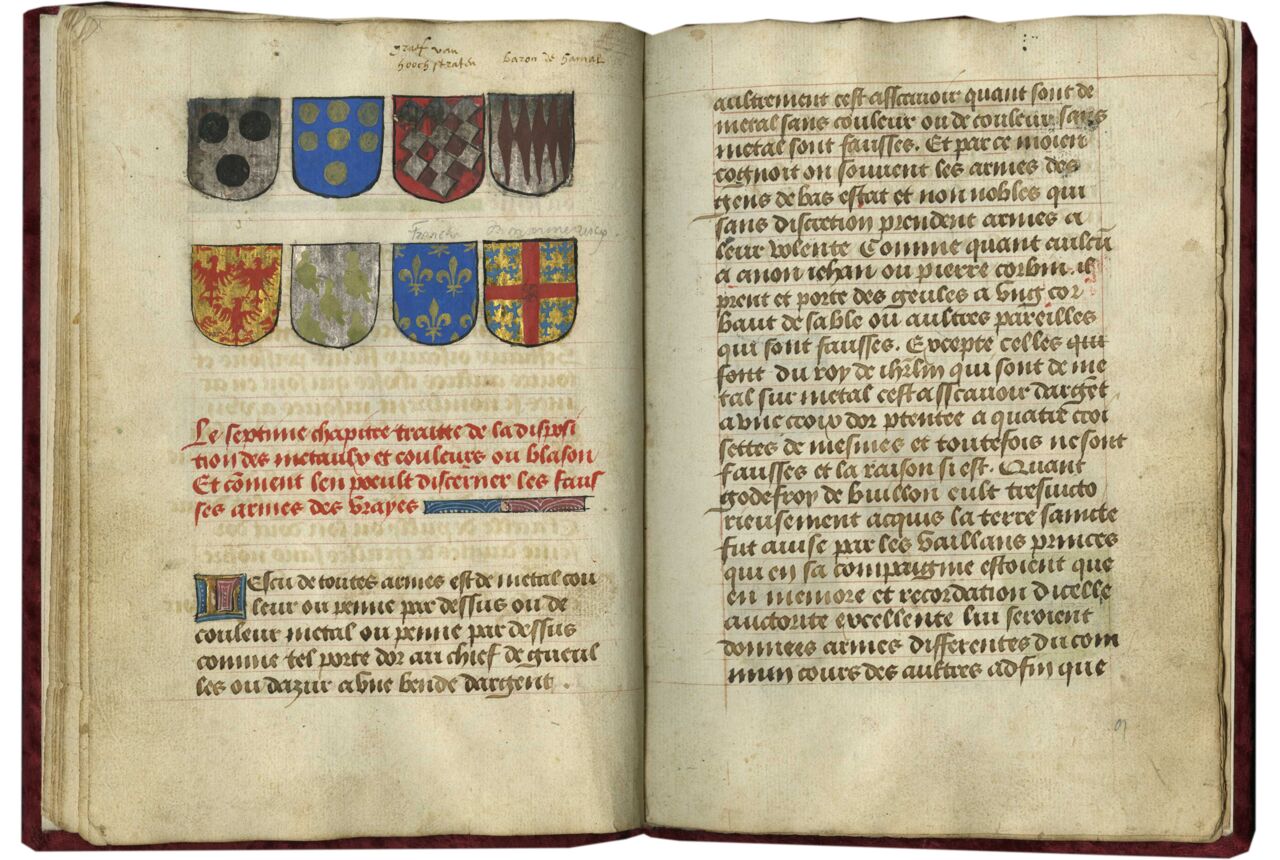 graef van
hoochstraten
baron de hamal
Le septime chapitre traitte de la disposi
tion des metaulx et couleurs ou blason
Et cõment len poeult discerner les faus
ses armes des vrayes
Lescu de toutes armes est de metal cou
leur ou penne par dessus ou de
couleur metal ou penne par dessus
comme tel porte dor au chief de gueul
les ou dazur a vne bende dargent .
aultrement cest asscauoir quant sont de
metal sans couleur ou de couleur sans
metal sont fausses. Et par ce moien
cognoit on souuent les armes des
gens de bas estat et non nobles qui
sans discretion prendent armes a
leur volente Comme quant aulcũ
a a nom iehan ou pierre corbin. il
prent et porte des geules a vng cor
baut de sable ou aultres pareilles
qui sont fausses. Excepte celles que
font du roy de ihrlm qui sont de me
tal sur metal cest asscauoir dargẽt
a vne croix dor ptentee a quatre croi
settes de mesmes et toutefois ne sont
fausses et la raison si est. Quant
godefroy de buillon eult tresuicto
rieusement acquis la terre saincte
fut auise par les vaillans princes
qui en sa compaignie estoient que
en memore et recordation dicelle
auctorite excellente lui seroient
donnees armes differentes du com
mun cours des aultres adfin que